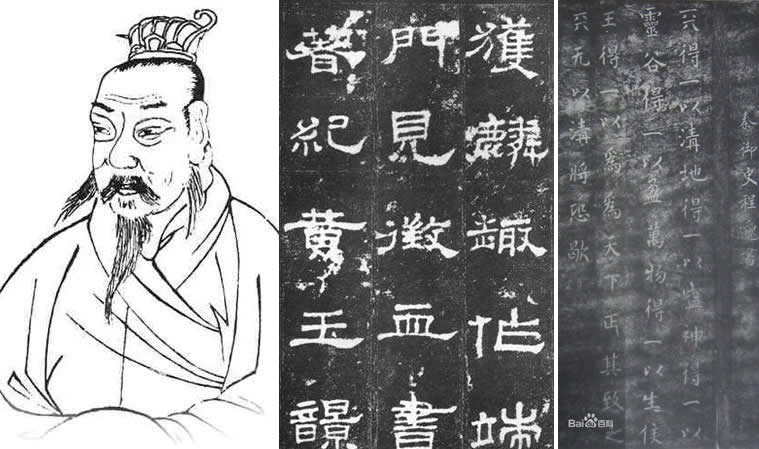 獲麟趣作端
門見徵血書
著紀黄玉
秦御史程邈書
天得一以清地得一以寧神得一以
靈谷得一以盈萬物得一以生侯
王得一以為為天下正其致之
天无以清將恐歇
Bai百科